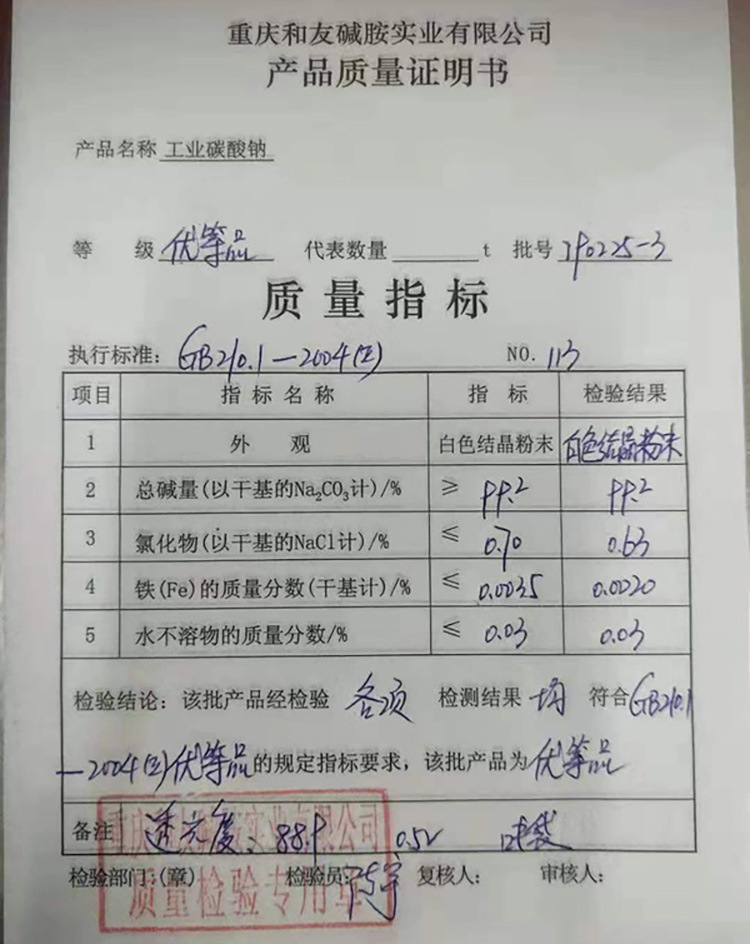 重庆和友碱胺实业有限公司
产品质量证明书
产品名称 工业碳酸钠
等 级 优等品 代表数量 t 批号 190225-3
质量指标
执行标准: GB210.1-2004(Ⅱ) NO. 113
项目 指标名称 指标 检验结果
1 外观 白色结晶粉末 白色结晶粉末
2 总碱量(以干基的Na₂CO₃计)/% ≥ 99.2 99.2
3 氯化物(以干基的NaCl计)/% ≤ 0.70 0.63
4 铁(Fe)的质量分数(干基计)/% ≤ 0.0035 0.0020
5 水不溶物的质量分数/% ≤ 0.03 0.03
检验结论: 该批产品经检验 各项 检测结果 均 符合 GB210.1
-2004(Ⅱ)优等品的规定指标要求，该批产品为优等品
备注 透光度、88.9 0.5t
重庆和友碱胺实业有限公司
检验部门:(章) 检验员: 复核人: 审核人:
质量检验专用章